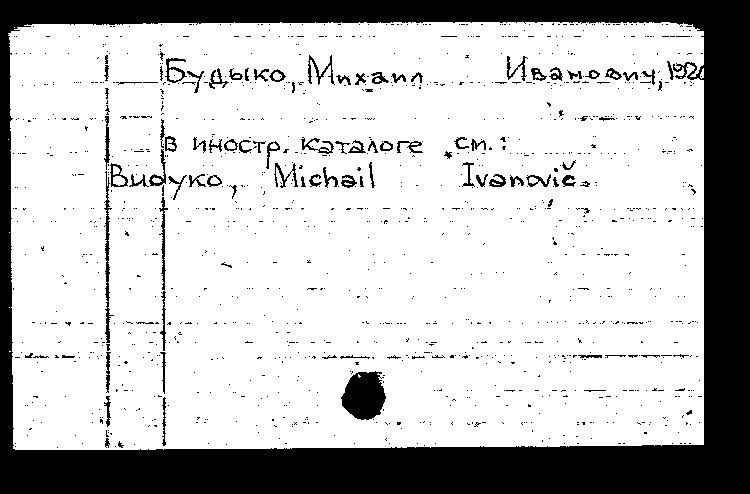 Будыко, Михаил Иванович, 1920
в иностр. каталоге см.:
Budyko, Michail Ivanovič.